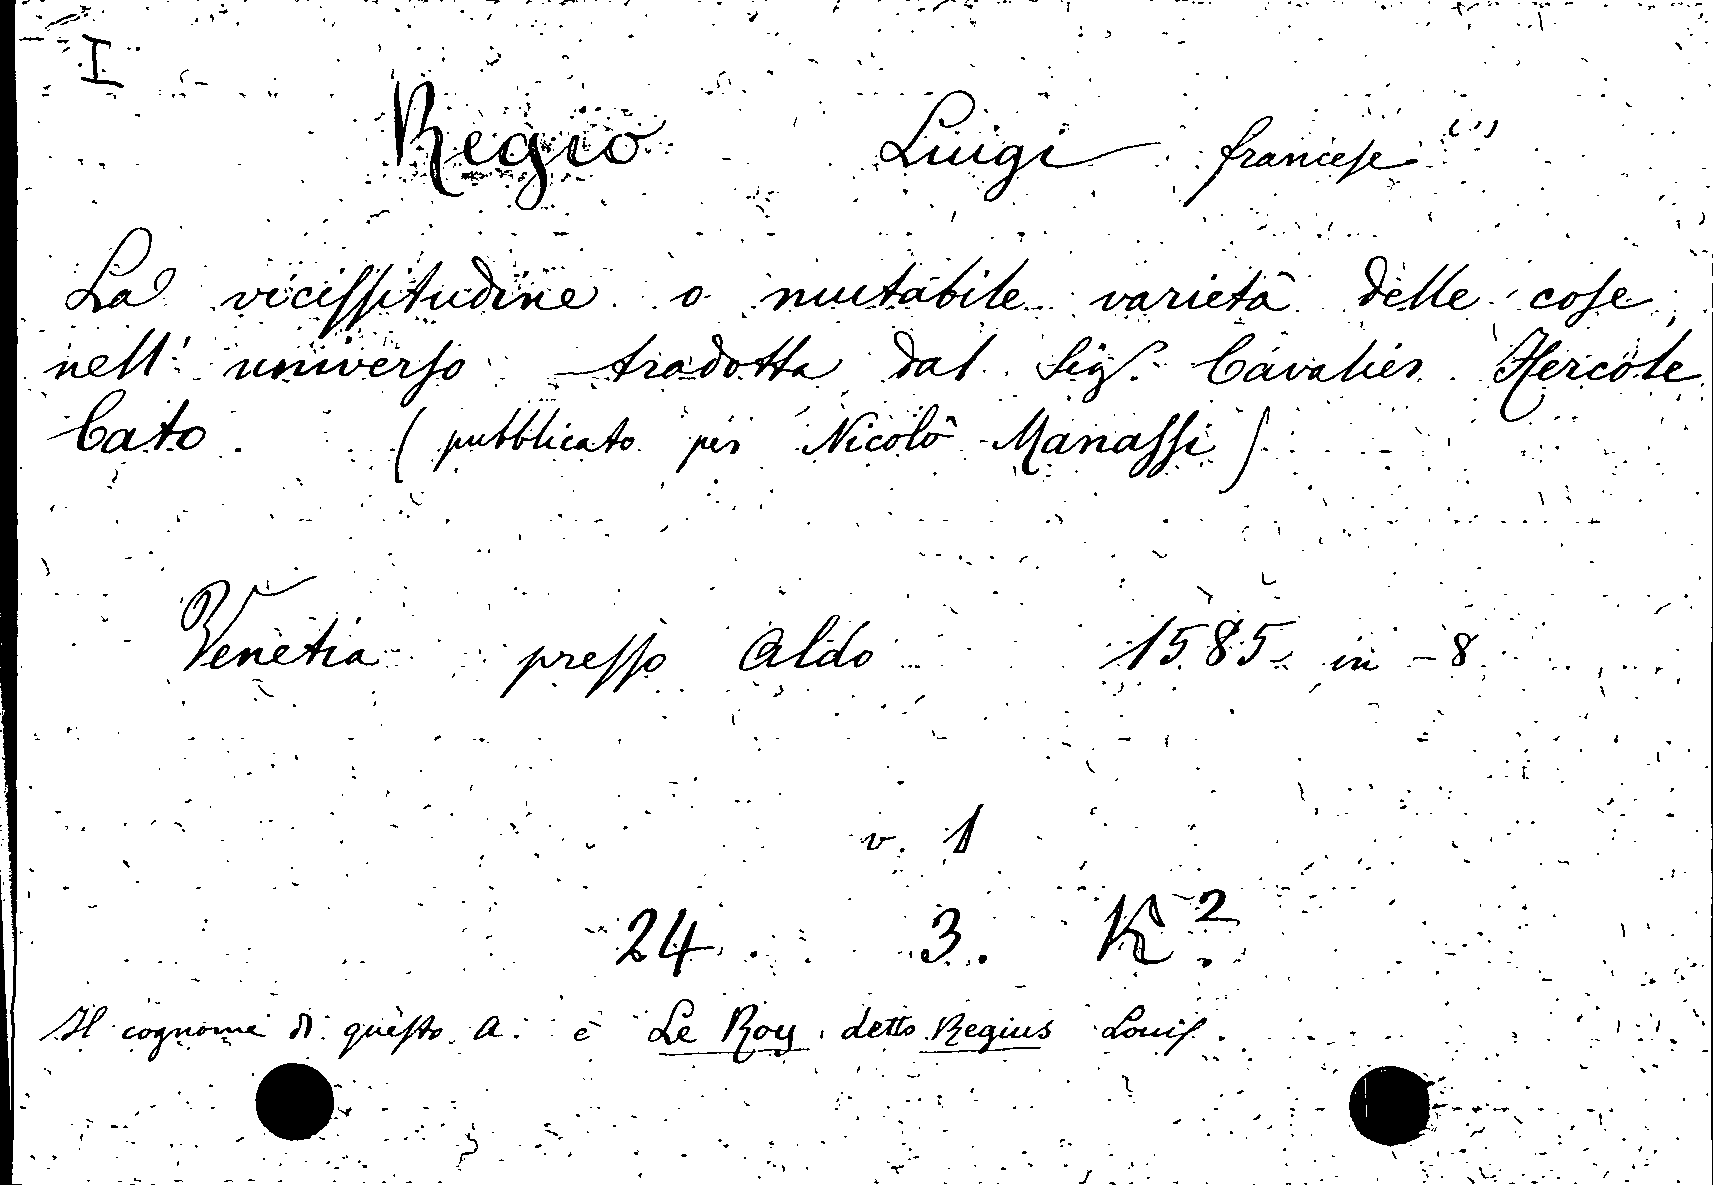 I
Regio Luigi francese (1)
La vicissitudine o mutabile varietà delle cose,
nell' universo tradotta dal Sig. Cavalier Hercole
Cato (pubblicato per Nicolò Manassi)
Venetia presso Aldo 1585 in -8
v. 1
24. 3. K².
Il cognome di questo A. è Le Roy, detto Regius Louis.